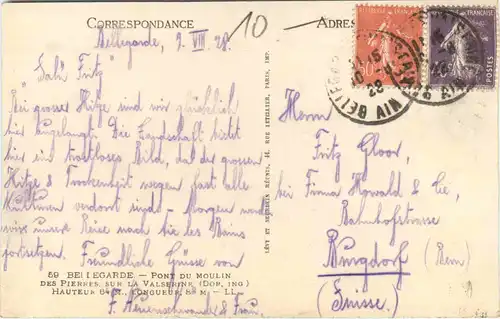 CORRESPONDANCE
ADRES
10 -
Bellegarde, 9. VIII 28.
Bei grosser Hitze sind wir glücklich
hier angelangt. Die Landschaft bietet
hier ein trostloses Bild, da der grossen
Hitze & Trockenheit wegen fast alle
Kulturen verdorrt sind. Morgen werden
wir unsere Reise nach les Bains
fortsetzen. Freundliche Grüsse von
F. & Frau.
59 BELLEGARDE. — PONT DU MOULIN
DES PIERRES, SUR LA VALSERINE (DOP, ING)
HAUTEUR LONGUEUR LL.
LÉVY ET NEURDEIN RÉUNIS, 44, RUE LETELLIER, PARIS, IMP.
Herrn
Fritz Gloor,
bei Firma Howald & Cie,
Bahnhofstrasse
Burgdorf (Bern)
(Suisse)
FRANÇAISE
POSTES
BELLEGARDE AIN
28